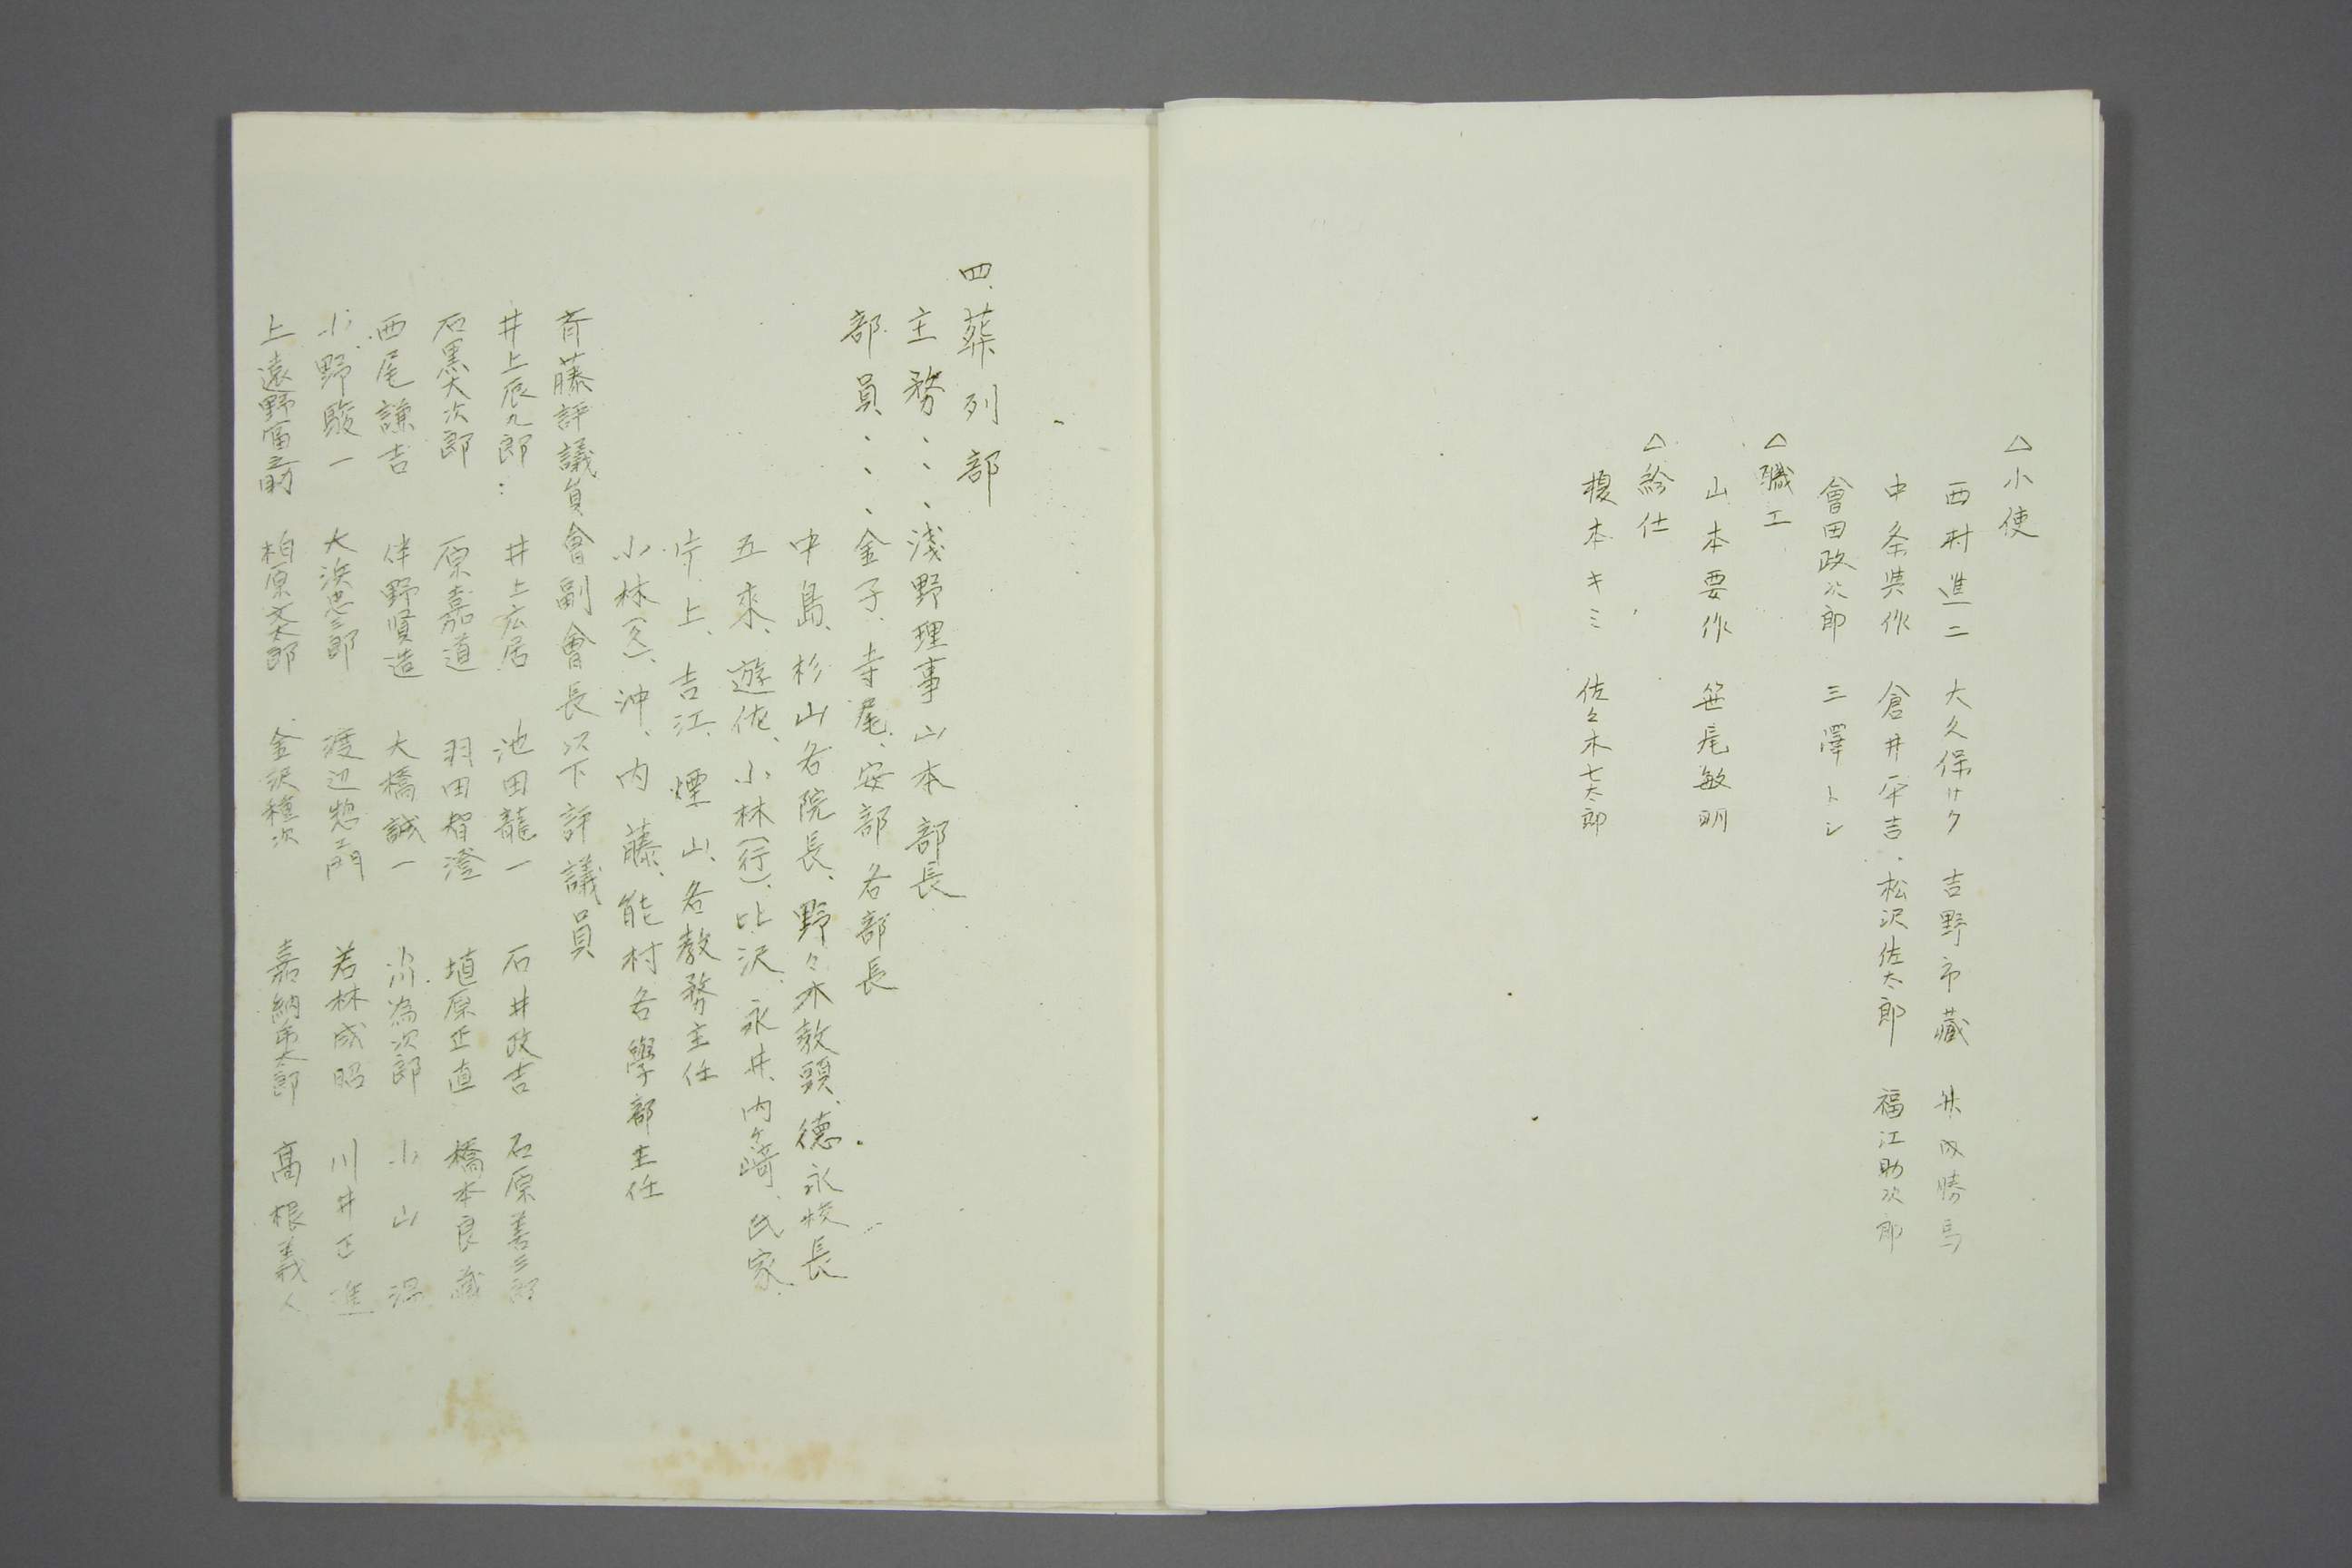 △小使
西村進二　大久保サク　吉野市藏　井内勝馬
中条與作　倉井平吉　松沢佐太郎　福江助次郎
會田政次郎　三澤トシ
△職工
山本要作　笹尾敏明
△給仕
榎本キミ　佐々木七太郎
四、葬列部
主務、、、淺野理事山本部長
部員、、、金子、寺尾、安部各部長
中島、杉山各院長、野々木教頭、德永校長
五來、遊佐、小林(行)、比沢、永井、内ヶ崎、氏家、
片上、吉江、煙山、各教務主任
小林(久)、沖、内藤、能村各學部主任
斉藤評議員會副會長以下評議員
井上辰九郎　井上広居　池田龍一　石井政吉　石原善三郎
石黒大次郎　原嘉道　羽田智澄　埴原正直　橋本良藏
西尾謙吉　伴野賢造　大橋誠一　小川為次郎　小山温
小野駿一　大浜忠三郎　渡辺惣エ門　若林成昭　川井正進
上遠野富之助　柏原文太郎　金沢種次　嘉納市太郎　髙根義人